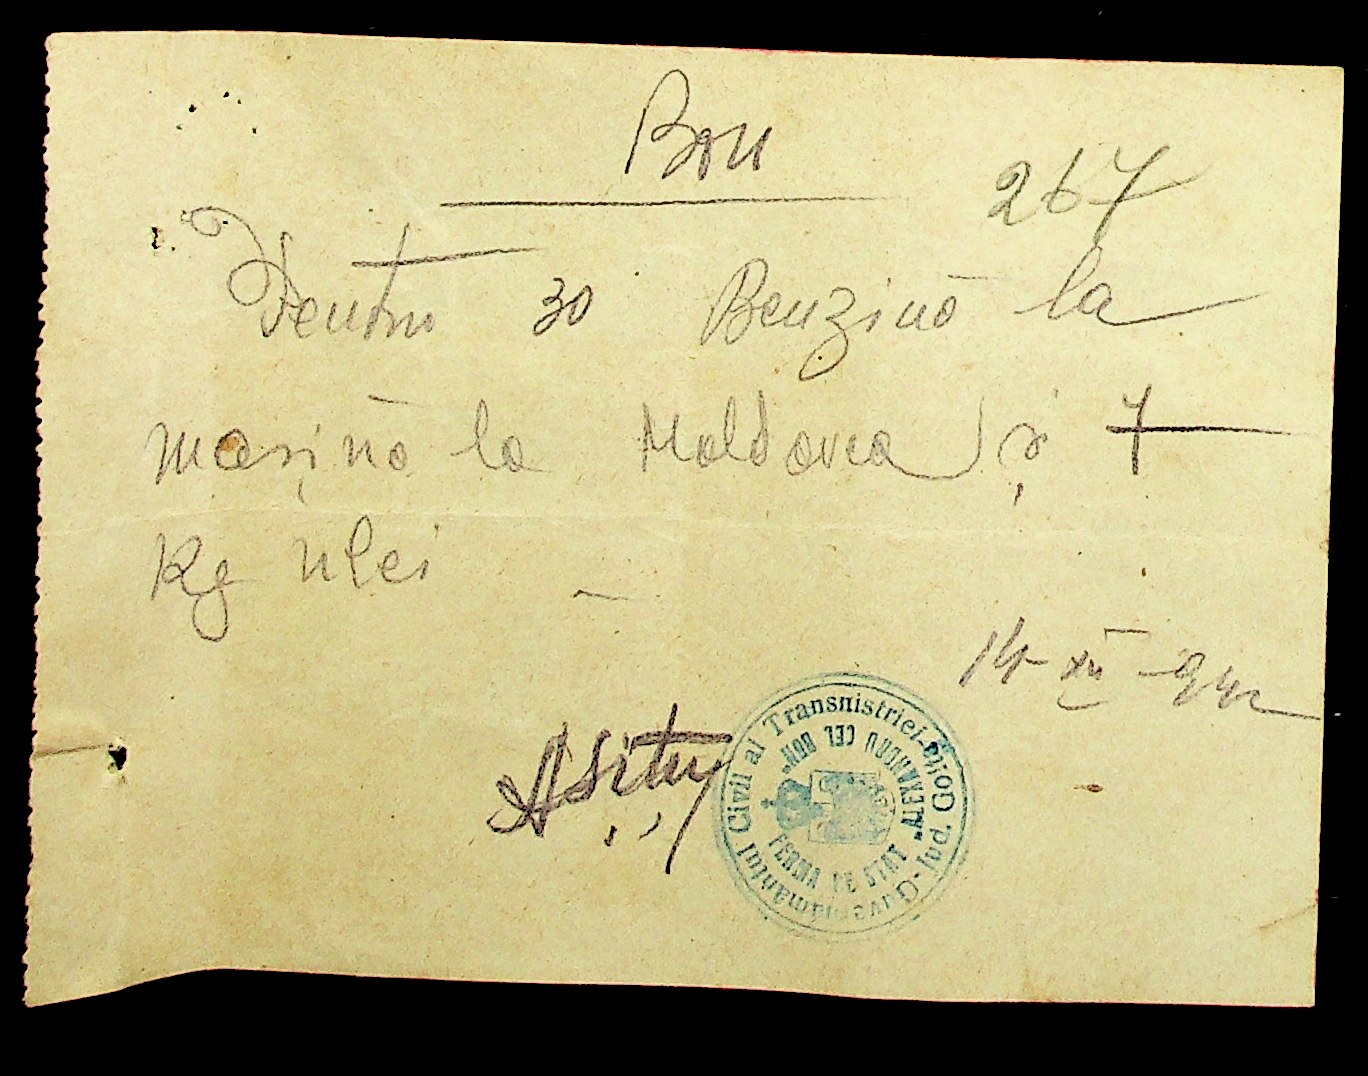 Bon
267
Pentru 30 Benzină la
mașină la Moldova și 7
Kg ulei
14-XII-942
Guvernământul Civil al Transnistriei-Jud. Golta
FERMA DE STAT „ALEXANDRU CEL BUN”